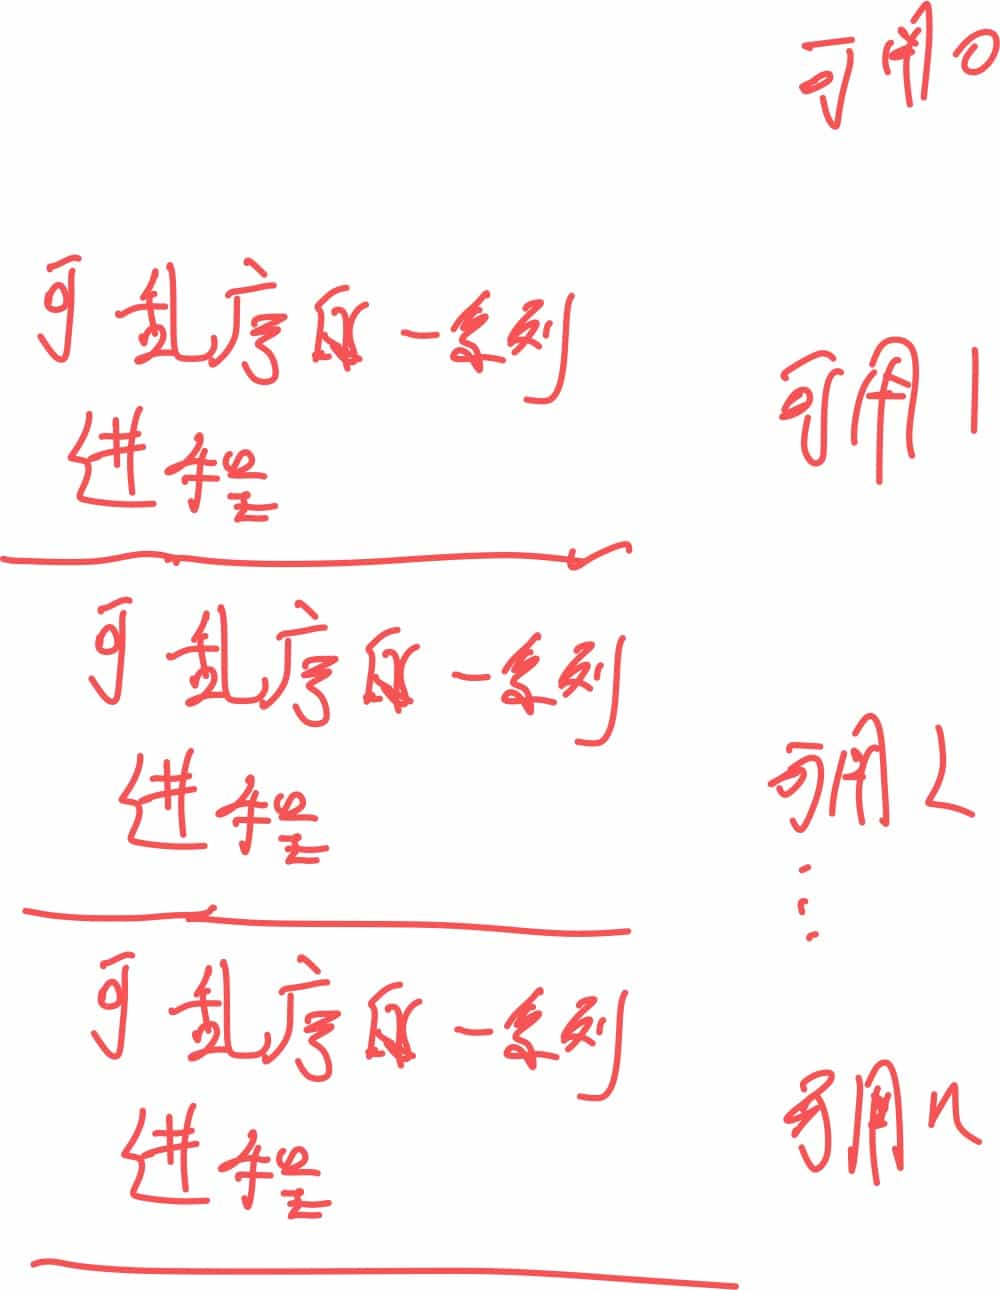 可用0
可乱序的一系列
可用1
进程
可乱序的一系列
进程
可用2
⋮
可乱序的一系列
进程
可用n